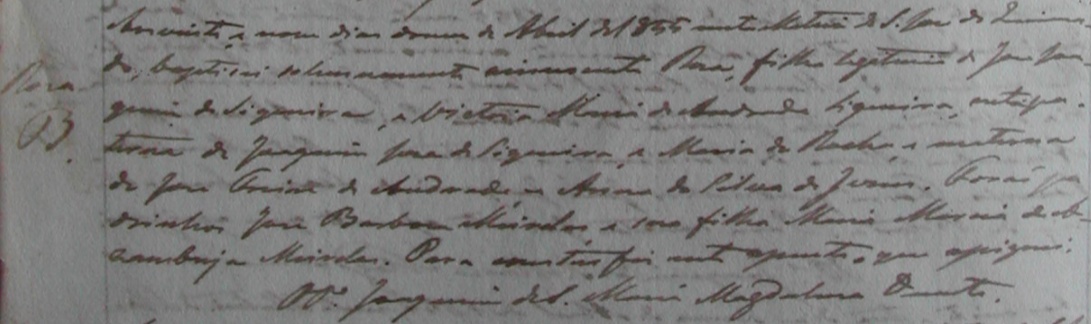 Aos vinte e nove dias do mes de Abril de 1855 nesta Matriz de S. Jose do
do, baptisei solemnemente innocente Rosa, filha legitima de Jose Joa-
Rosa
quim de Siqueira, e Victoria Maria de Andrade Siqueira, neta pa-
B.
terna de Joaquim Jose de Siqueira, e Maria da Rocha, e materna
de Jose de Andrade, e Anna da Silva de Jesus. Forão pa-
drinhos Jose Barbosa Meirelles, e sua filha Maria de
Meirelles. Para constar fiz este que assignei.
O Vº. Joaquim de S. Maria Magdalena Duarte.